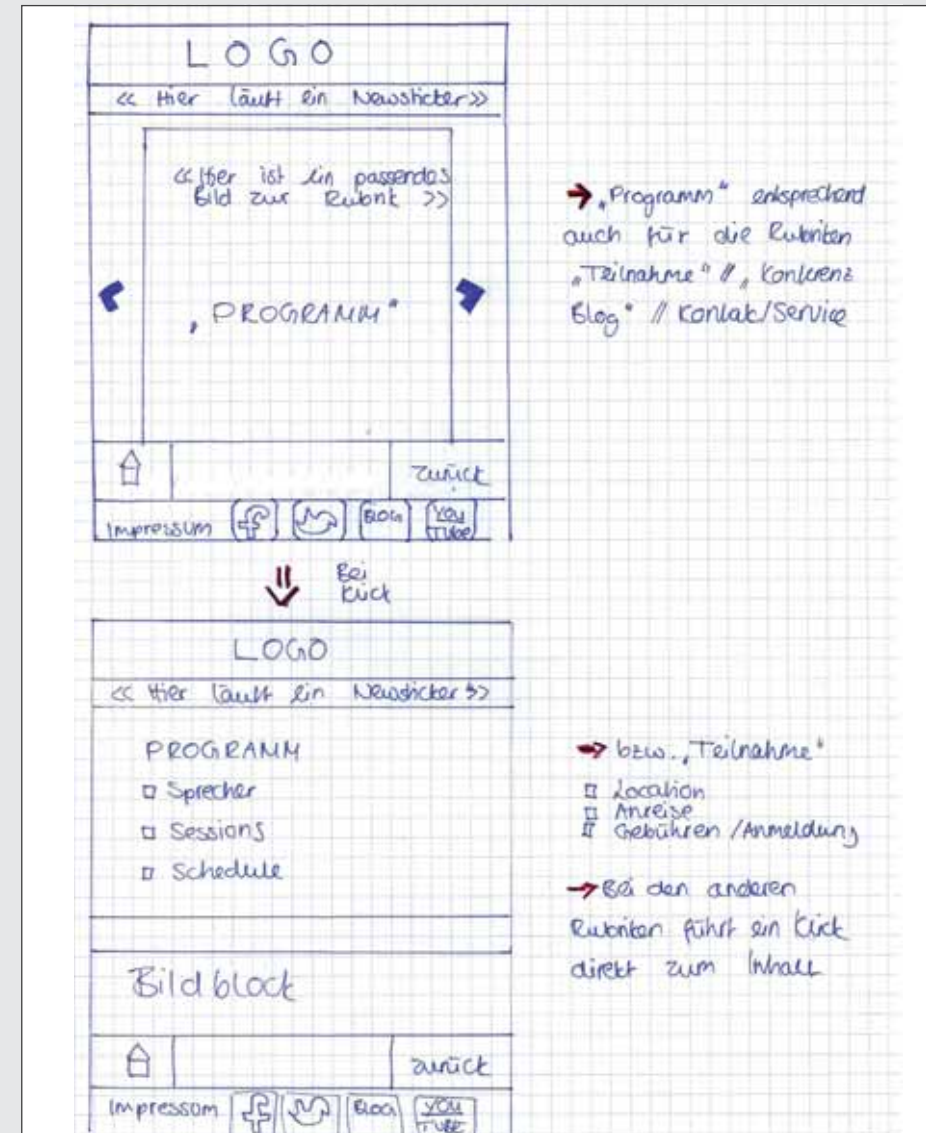 LOGO
<< Hier läuft ein Newsticker >>
<< Hier ist ein passendes
Bild zur Rubrik >>
„PROGRAMM"
zurück
Impressum f BLOG YOU
TUBE
→ „Programm" entsprechend
auch für die Rubriken
„Teilnahme" // „Konferenz
Blog" // Kontakt/Service
⇓ Bei
Klick
LOGO
<< Hier läuft ein Newsticker >>
PROGRAMM
Sprecher
Sessions
Schedule
Bildblock
zurück
Impressum f BLOG YOU
TUBE
→ bzw. „Teilnahme"
Location
Anreise
Gebühren / Anmeldung
→ Bei den anderen
Rubriken führt ein Klick
direkt zum Inhalt